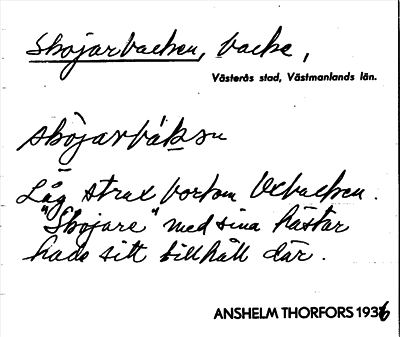 Skojarbacken, backe,
Västerås stad, Västmanlands län.
skòjarbàksn
Låg strax bortom Oxbacken.
"Skojare" med sina hästar
hade sitt tillhåll där.
ANSHELM THORFORS 1936